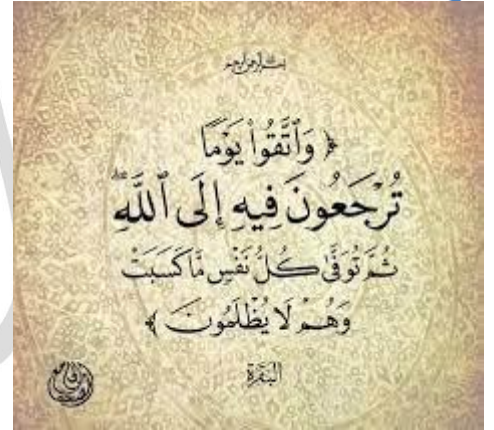 بسم الله الرحمن الرحيم
﴿ وَٱتَّقُوا۟ يَوْمًا
تُرْجَعُونَ فِيهِ إِلَى ٱللَّهِ ۖ
ثُمَّ تُوَفَّىٰ كُلُّ نَفْسٍ مَّا كَسَبَتْ
وَهُمْ لَا يُظْلَمُونَ ﴾
البَقَرَة